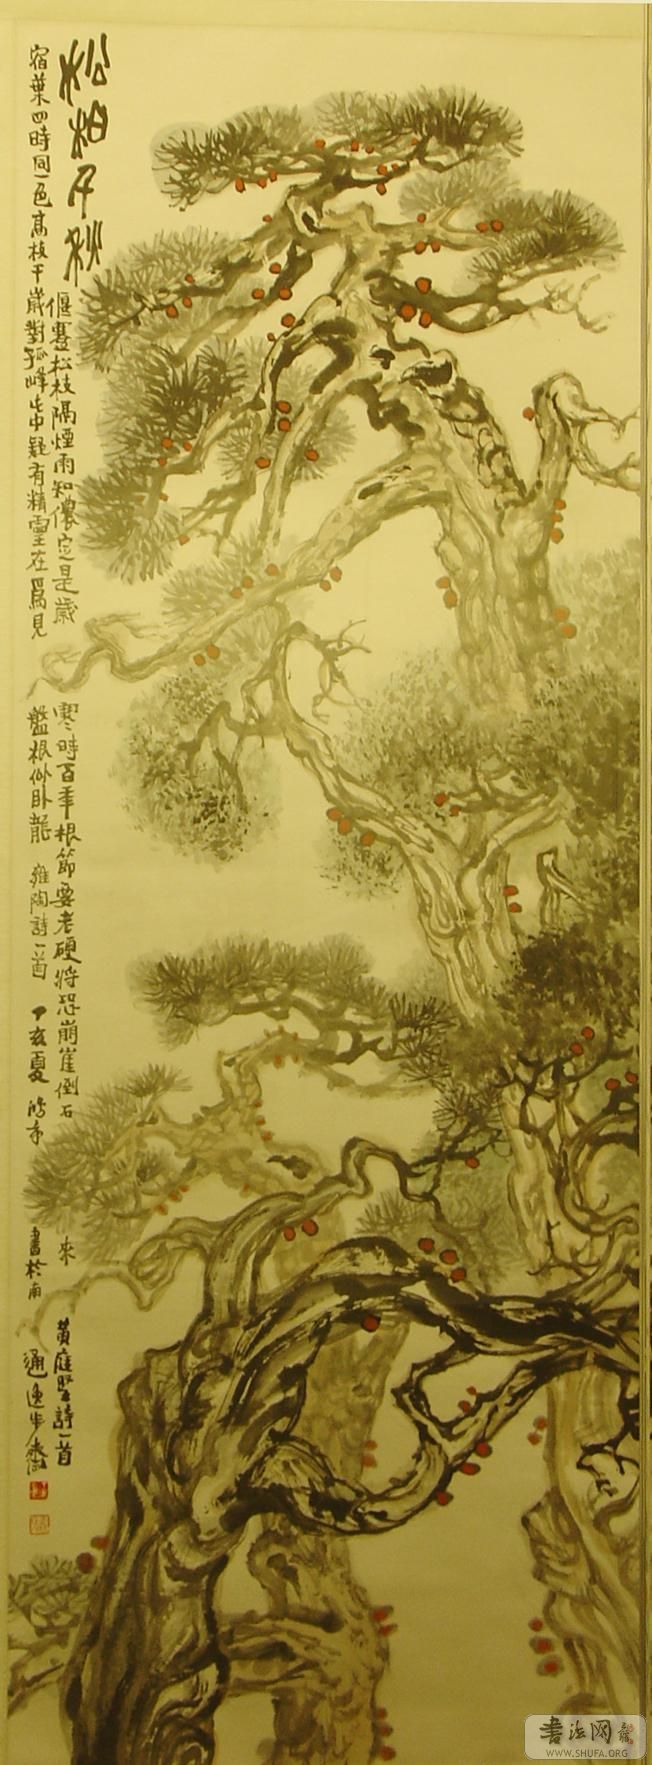 松柏千秋
偃蹇松枝隔煙雨知儂定是歲寒時百年根節要老硬將恐崩崖倒石來 黃庭堅詩一首
宿葉四時同一色高枝千歲對孤峰此中疑有精靈在為見盤根似臥龍 雍陶詩一首 丁亥夏
書於南通逸步齋
書法网
WWW.SHUFA.ORG